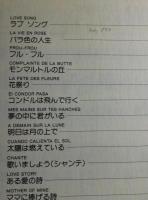 LOVE SONG
ラブ ソング
LA VIE EN ROSE
バラ色の人生
FROU-FROU
フル・フル
COMPLAINTE DE LA BUTTE
モンマルトルの丘
LA FETE DES FLEURS
花祭り
El CONDOR PASA
コンドルは飛んで行く
MES MAINS SUR TES HANCHES
夢の中に君がいる
A DEMAIN SUR LA LUNE
明日は月の上で
CUANDO CALIENTA EL SOL
太陽は燃えている
CHANTE
歌いましょう(シャンテ)
LOVE STORY
ある愛の詩
MOTHER OF MINE
ママに捧げる詩